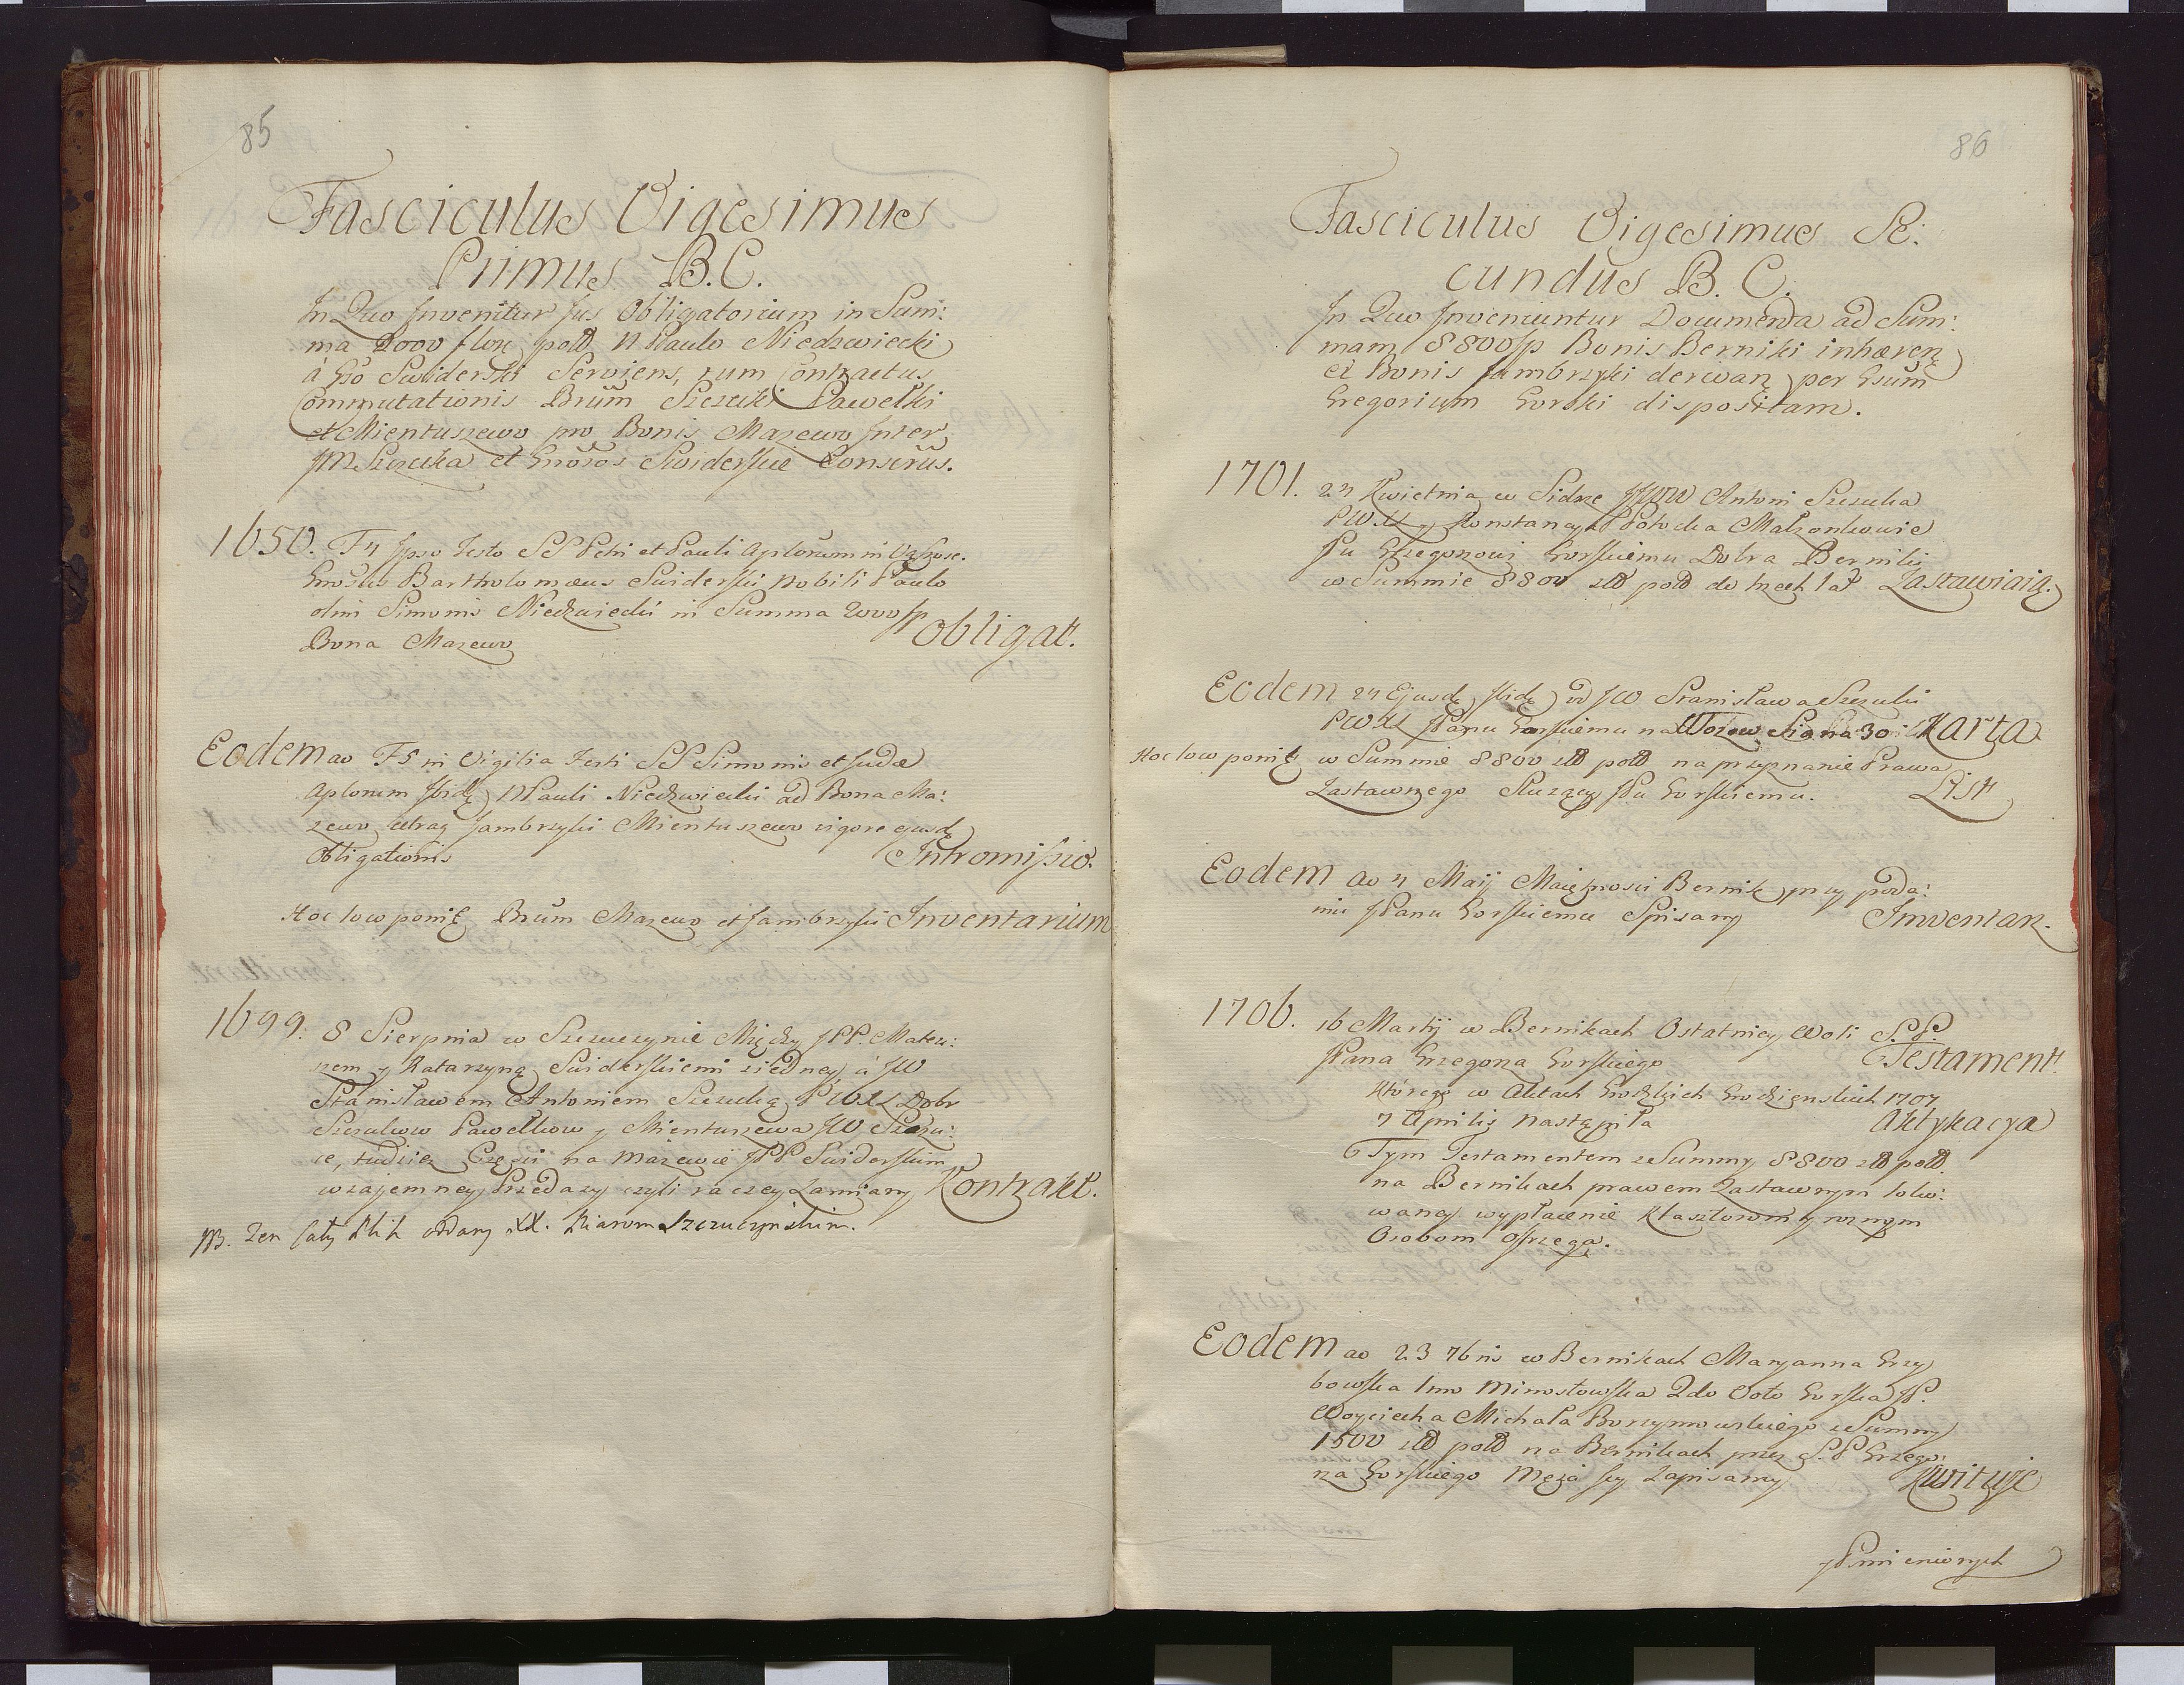 85
Fasciculus Vigesimus
Primus B.C.
In Quo Invenitur Jus Obligatorium in Sum:
ma 2000 flor pold N Paulo Niedzwiecki
à Gso Swiderski Serviens, cum Contractus
Commutationis Bnũm Szczuki Pawełki
et Mientuszewo pro Bonis Mazewo inter
JM Szczuka et Gnosos Swiderskie Conscrus.
1650. F 4 Ipso Festo SS Petri et Pauli Aplorum in
Gnosus Bartholomæus Swiderski Nobili Paulo
olim Simonis Niedzwiecki in Summa 2000 fp
Bona Mazewo Obligat.
Eodem ao F 5 in Vigilia Festi SS Simonis et Judæ
Aplorum Ibidę N Pauli Niedzwiecki ad Bona Ma:
zewo utraq Jambrzyki Mientuszewo vigore ejusd
Obligationis Intromissio.
Hoc loco ponit Bnũm Mazewo et Jambrzyki Inventarium
1699. 8 Sierpnia w Szczuczynie Między JPP. Mateu:
szem y Katarzyną Swiderskiemi z iedney, à JW
Stanisławem Antoniem Szczuką PWXL Dobr
Szczukow Pawełkow y Mientuszewa JW Szczu:
ce, tudziez Części na Mazewie JPP Swiderskim
wzajemney Przedazy czyli raczey Zamiany Kontrakt.
NB. Ten cały Plik oddany XX. Piarom Szczuczynskim.
86
Fasciculus Vigesimus Se:
cundus B. C.
In Quo Inveniuntur Documenta ad Sum:
mam 8800 fp Bonis Berniki inhæren
et Bonis Jambrzyki derivan per Gsum
Gregorium Gorski dispositam.
1701. 24 Kwietnia w Sidrze JWW Antoni Szczuka
PWXL y Konstancya Potocka Małzonkowie
JPu Grzegorzowi Gorskiemu Dobra Berniki
w Summie 8800 złł poll do trzech lat Zastawiaią.
Eodem 24 Ejusdę Ibidę od JW Stanisława Szczuki
PWXL JPanu Gorskiemu na Wozow Siana 30 Karta
Hoc loco ponit w Summie 8800 złł poll na przyznanie Prawa
Zastawnego Sluzący JPu Gorskiemu. List
Eodem ao 4 Maij Maiętnosci Bernik przy poda:
niu JPanu Gorskiemu Spisany Inwentarz.
1706. 16 Martij w Bernikach Ostatniey Woli S.P.
JPana Grzegorza Gorskiego Testament.
Którego w Aktach Grodzkich Grodzienskich 1707
7 Aprilis nastąpiła Aktykacya
Tym Testamentem z Summy 8800 złł poll.
na Bernikach prawem Zastawnym loko:
waney wypłacenie Klasztorom y roznym
Osobom Ostrzega.
Eodem ao 23 7bris w Bernikach Maryanna Grzy
bowska 1mo Mirosłowska 2do Voto Gorska JP.
Woyciecha Michała Borzymowskiego z Summy
1500 złł poll na Bernikach przez S.P. Grzego:
rza Gorskiego Męża Jey Zapisany Kwituje
y Pmienionych